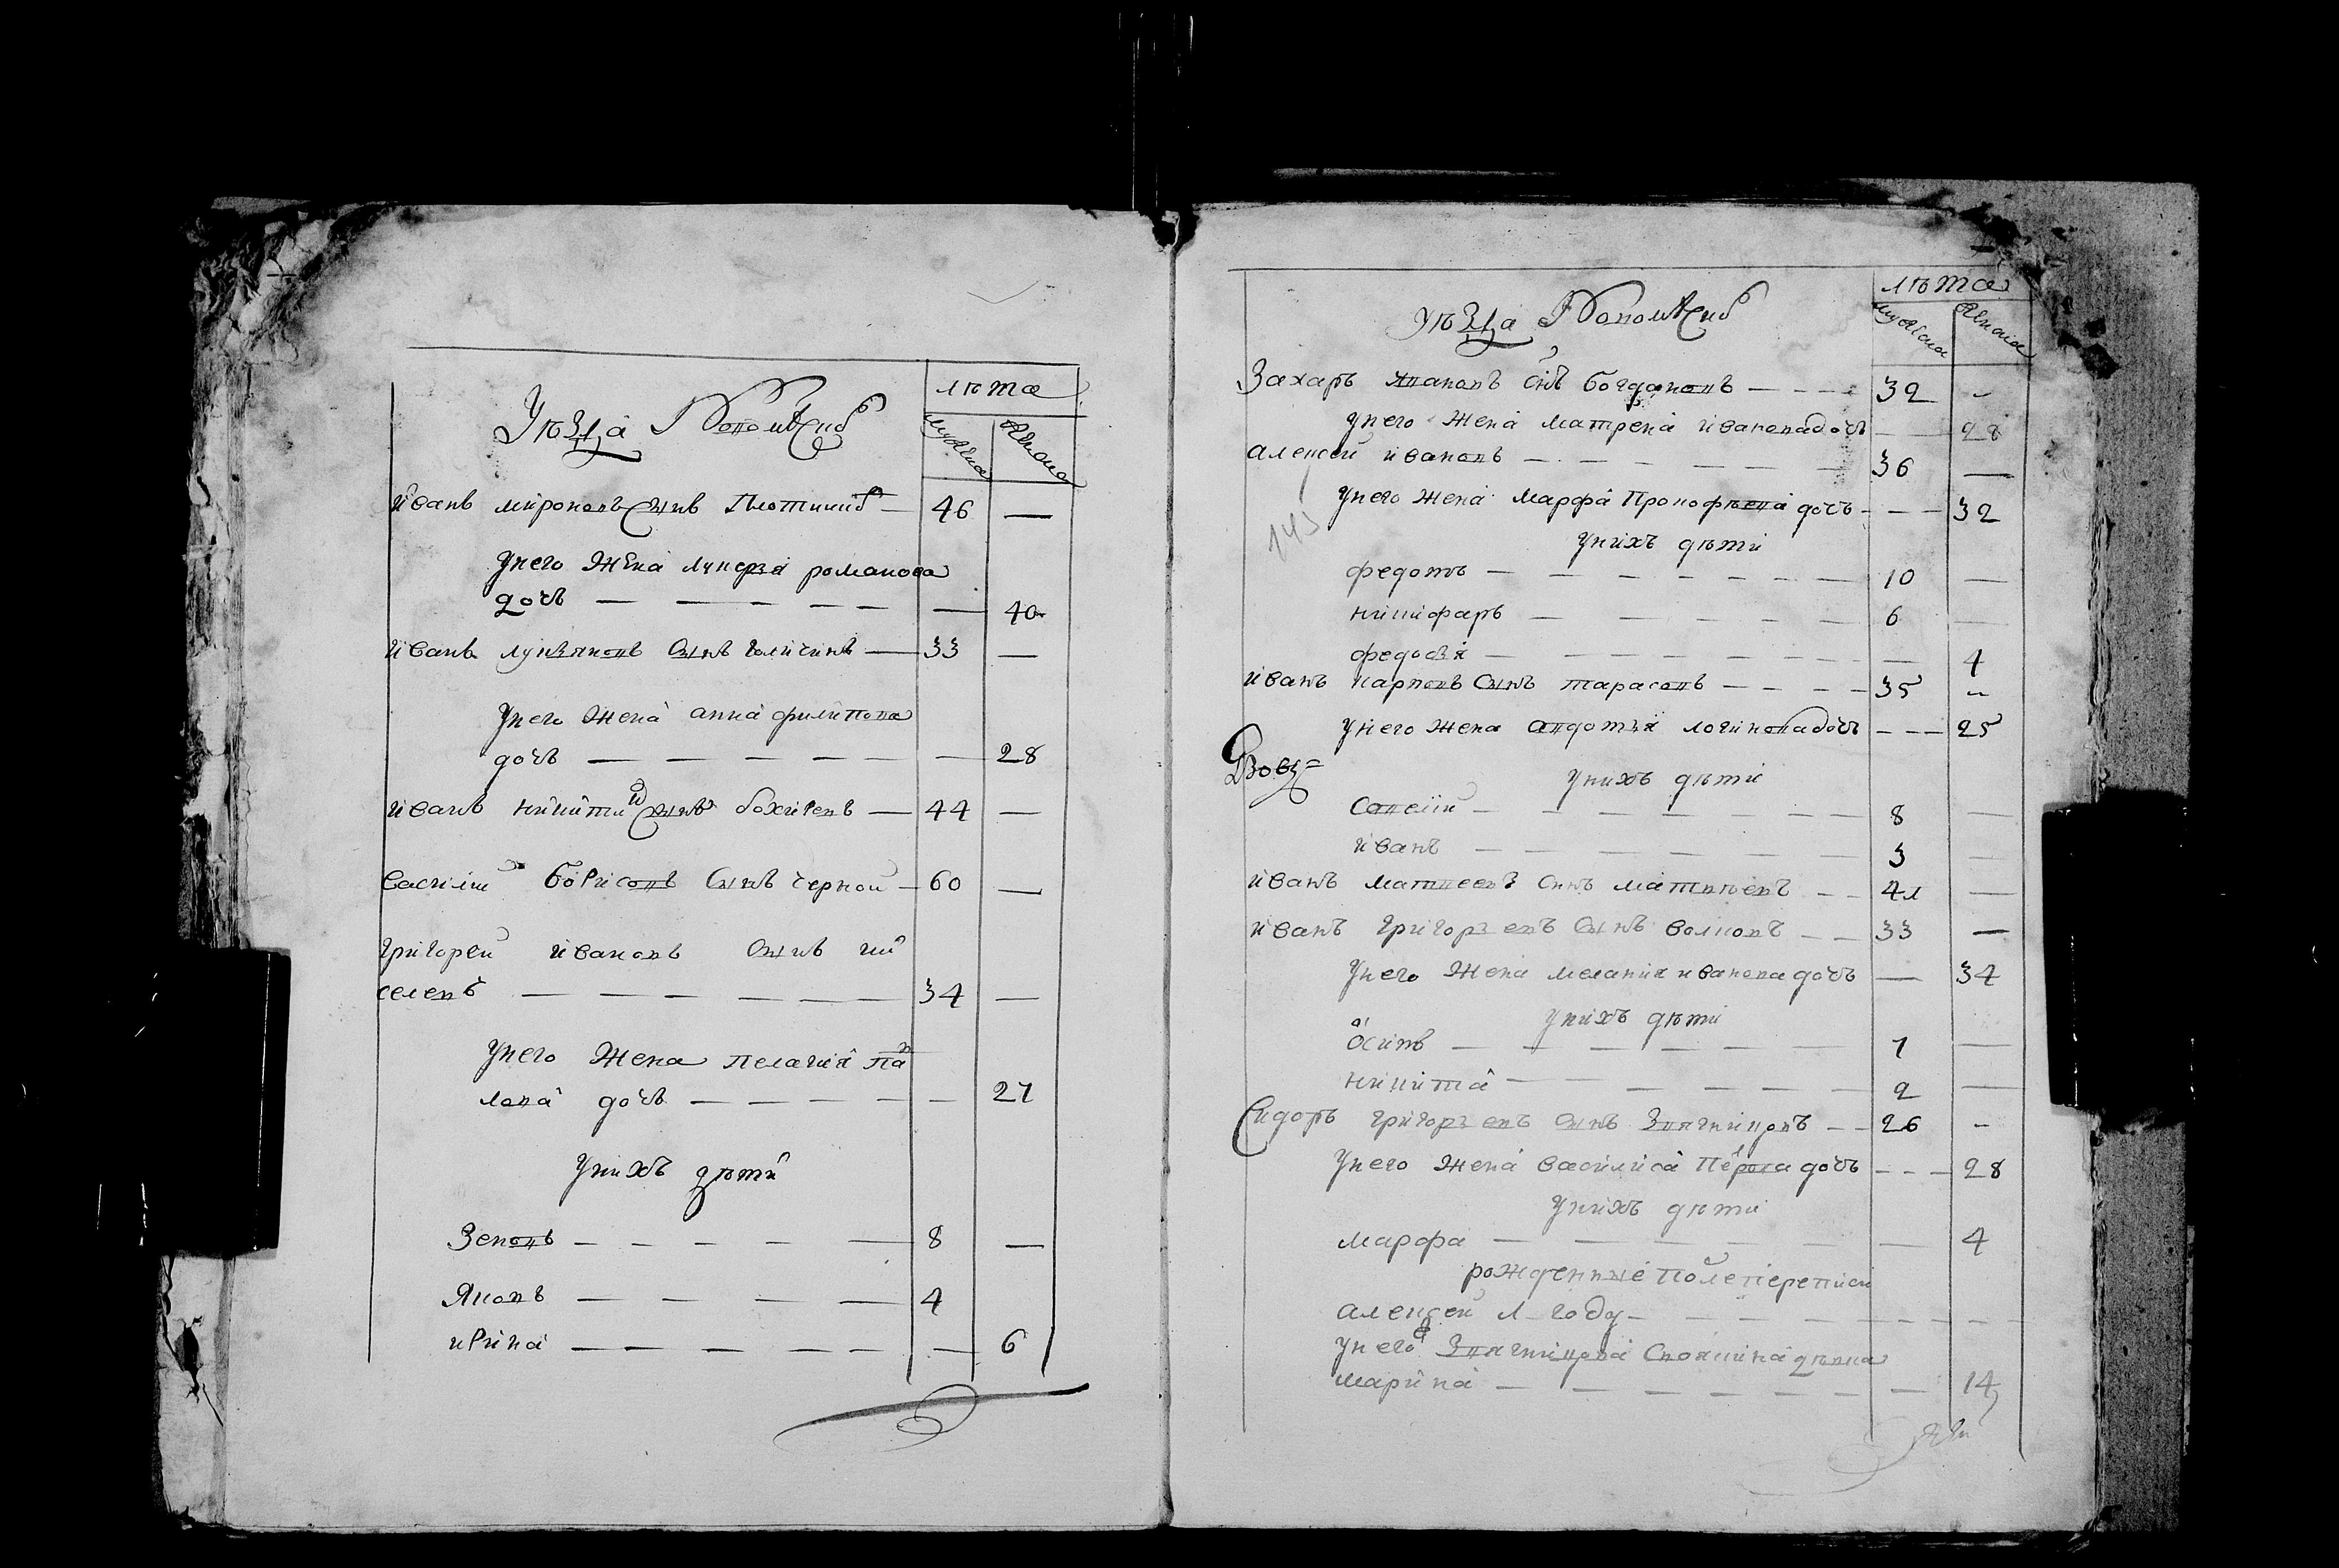 лѣта
Уѣзда
мужеска
женска
Иванъ мироновъ сынъ Плотникъ — 46 —
Унего жена лукеря романова
дочь — 40
иванъ лукяновъ сынъ голисинъ — 33 —
Унего жена анна филипова
дочь — 28
иванъ никитинъ сынъ — 44 —
василии борисовъ сынъ черной — 60 —
григореи ивановъ сынъ ки
селевъ — 34 —
Унего жена пелагия па
лова дочь — 27
Унихъ дѣти
Зеновъ — 8 —
Яковъ — 4
ирина — 6
лѣта
уѣзда
мужеска женска
Захаръ ивановъ снъ богдановъ — 32 —
Унего жена матрена иванова дочь — 28
алексеи ивановъ — 36 —
Унего жена марфа Прокофьева дочь — 32
145
Унихъ дѣти
федотъ — 10 —
никифаръ — 6 —
федосья — 4
иванъ карповъ сынъ тарасовъ — 35 —
Унего жена авдотья логинова дочь — 25
Унихъ дѣти
савелии — 8 —
иванъ — 3 —
иванъ матвеевъ снъ матвѣевъ — 41 —
иванъ григорьевъ сынъ волковъ — 33 —
Унего жена мелания иванова дочь — 34
Унихъ дѣти
осипъ — 7 —
никита — 2 —
Сидоръ григорьевъ сынъ Звягинцовъ — 26 —
Унего жена василиса Петрова дочь — 28
Унихъ дѣти
марфа — 4
рожденные после переписи
алексеи 1 году
Унего Звягинцова своячина дѣвка
марина — 14